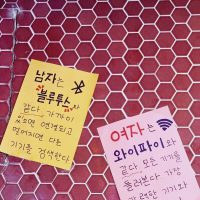 남자는
블루투스와
같다. 가까이
있으면 연결되고
멀어지면 다른
기기를 검색한다.
여자는
와이파이와
같다 모든 기기를
둘러본다 가장
강력한 기기와